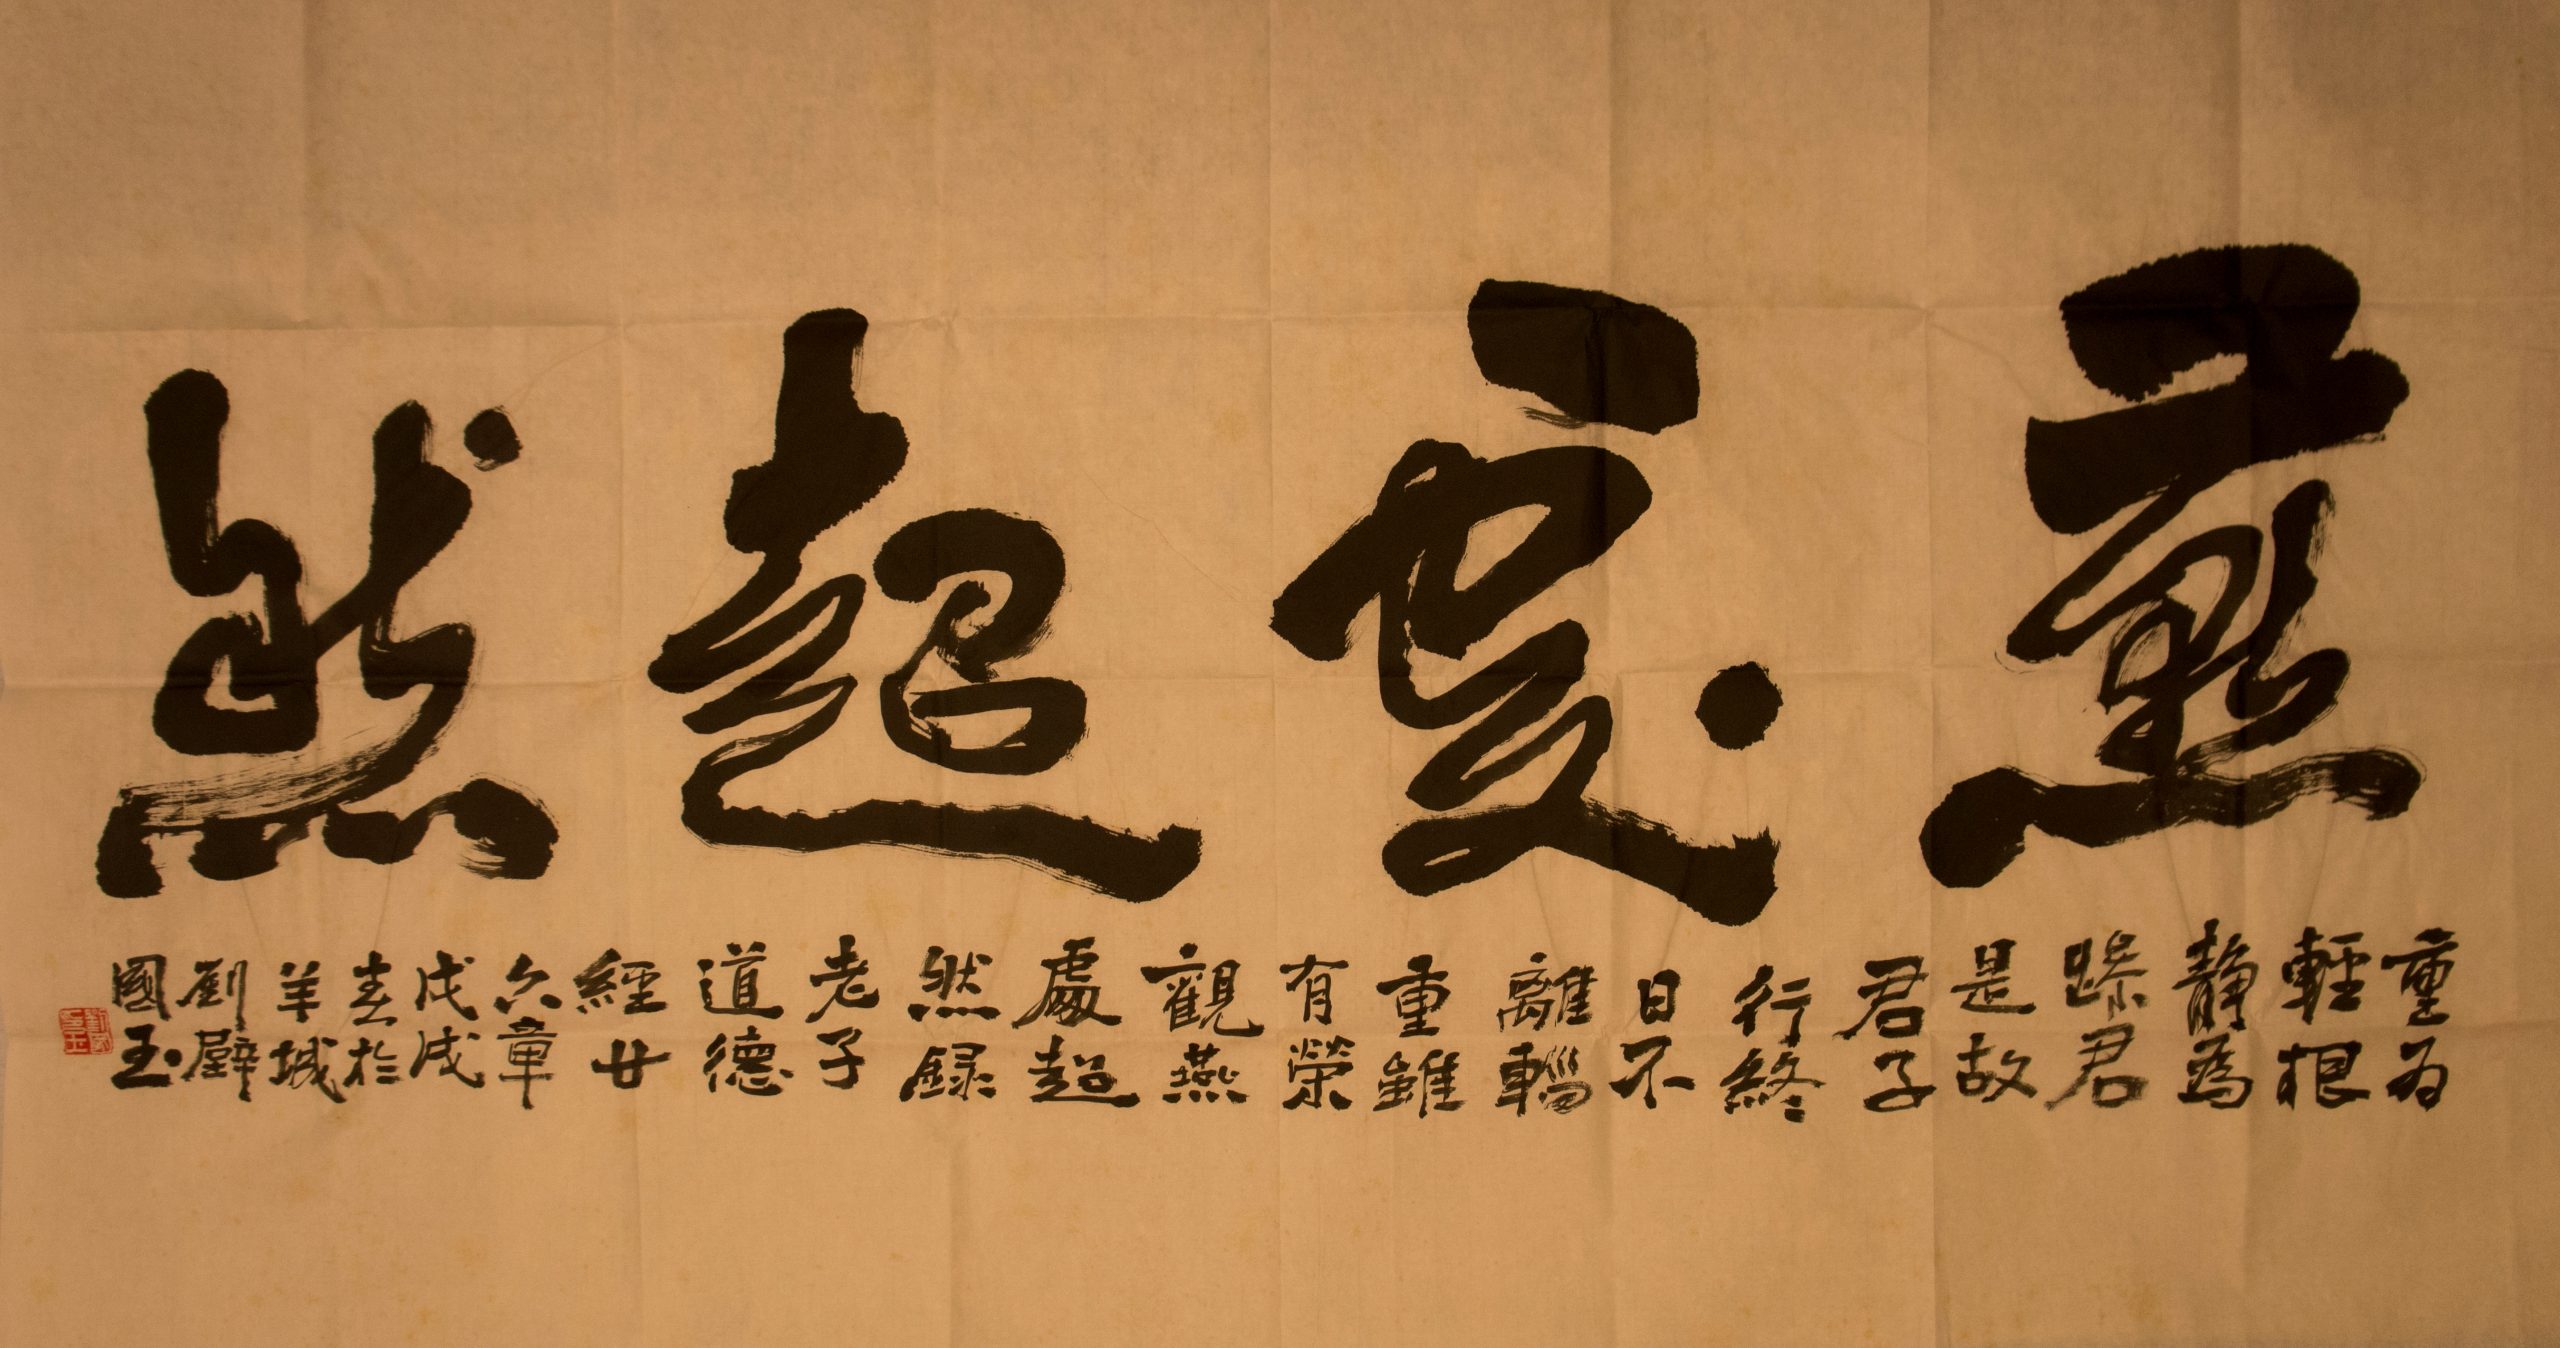 燕處超然
重為
輕根
靜為
躁君
是故
君子
行終
日不
離輜
重雖
有榮
觀燕
處超
然錄
老子
道德
經廿
六章
戊戌
春於
羊城
劉璧
國玉